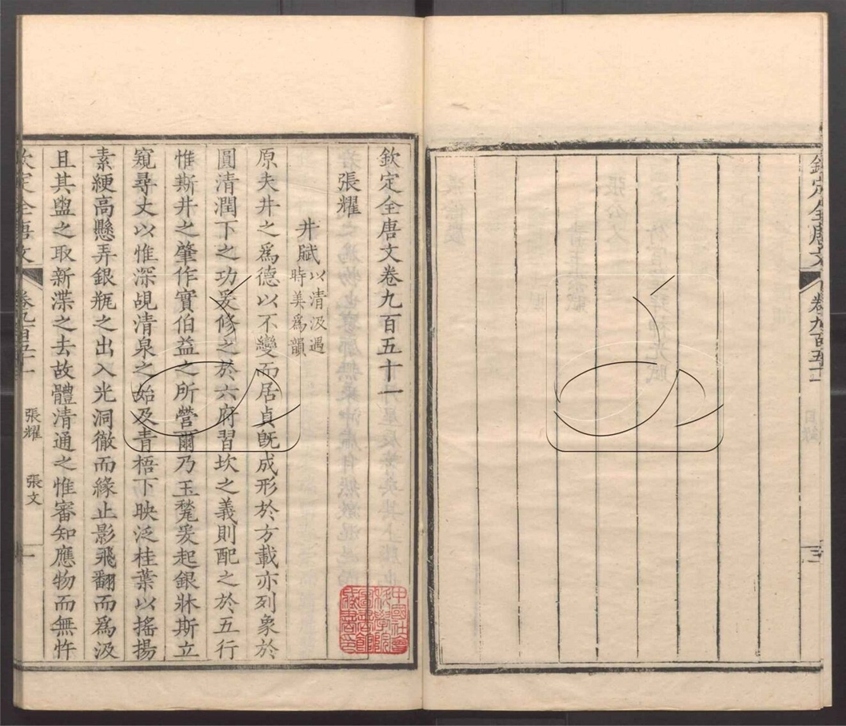 欽定全唐文
卷九百五十一
欽定全唐文卷九百五十一
張耀
井賦以清汲遇
時美為韻
原夫井之為德以不變而居貞既成形於方載亦列象於
圓清潤下之功爰修之於六府習坎之義則配之於五行
惟斯井之肇作實伯益之所營爾乃玉甃爰起銀牀斯立
窺尋丈以惟深覘清泉之始及青梧下映泛桂葉以搖揚
素綆高懸弄銀瓶之出入光洞徹而緣止影飛翻而為汲
且其盥之取新渫之去故體清通之惟審知應物而無忤
欽定全唐文
卷九百五十一
張耀
張文
一